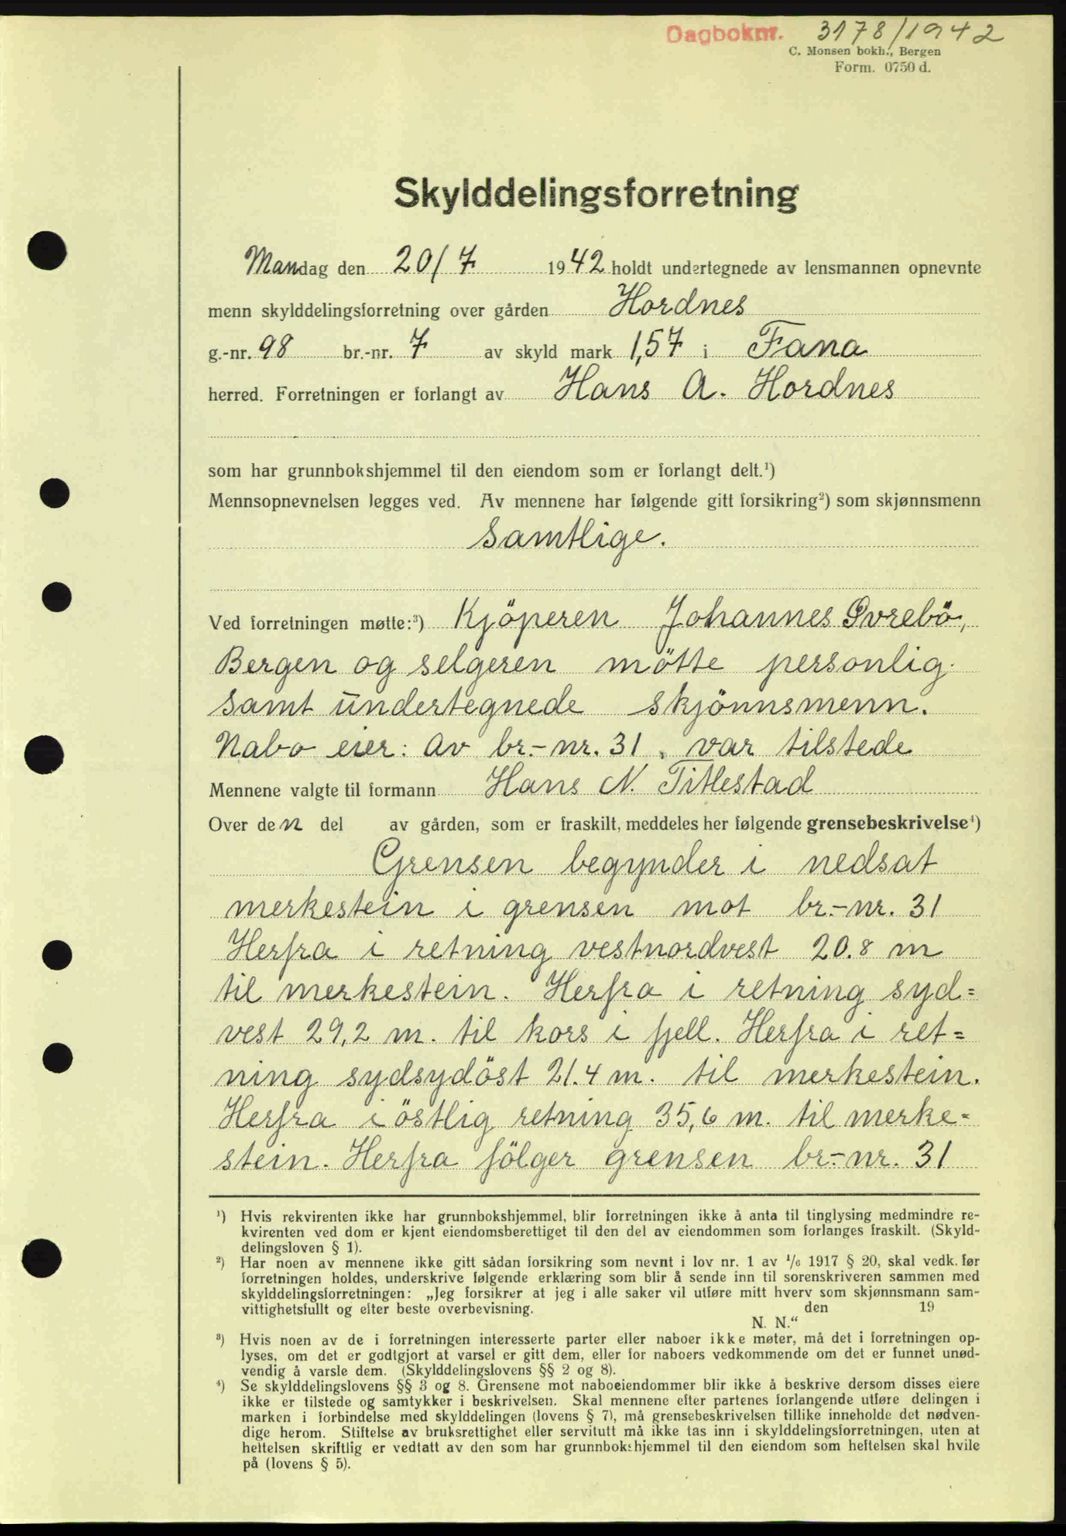 Dagboknr. 3178/1942
C. Monsen bokh., Bergen
Form. 0750 d.
Skylddelingsforretning
Mandag den 20/7 1942 holdt undertegnede av lensmannen opnevnte
menn skylddelingsforretning over gården Hordnes
g.-nr. 98 br.-nr. 7 av skyld mark 1,57 i Fana
herred. Forretningen er forlangt av Hans A. Hordnes
som har grunnbokshjemmel til den eiendom som er forlangt delt.¹)
Mennsopnevnelsen legges ved. Av mennene har følgende gitt forsikring²) som skjønnsmenn
Samtlige.
Ved forretningen møtte:³) Kjöperen Johannes Øvrebö,
Bergen og selgeren mötte personlig
samt undertegnede skjönnsmenn.
Nabo eier: av br.-nr. 31, var tilstede
Mennene valgte til formann Hans N. Titlestad
Over den del av gården, som er fraskilt, meddeles her følgende grensebeskrivelse⁴)
Grensen begynder i nedsat
merkestein i grensen mot br.-nr. 31
Herfra i retning vestnordvest 20.8 m
til merkestein. Herfra i retning syd=
vest 29,2 m. til kors i fjell. Herfra i ret=
ning sydsydöst 21.4 m. til merkestein.
Herfra i östlig retning 35,6 m. til merke=
stein. Herfra fölger grensen br.-nr. 31
¹) Hvis rekvirenten ikke har grunnbokshjemmel, blir forretningen ikke å anta til tinglysing medmindre re-
kvirenten ved dom er kjent eiendomsberettiget til den del av eiendommen som forlanges fraskilt. (Skyld-
delingsloven § 1).
²) Har noen av mennene ikke gitt sådan forsikring som nevnt i lov nr. 1 av 1/6 1917 § 20, skal vedk. før
forretningen holdes, underskrive følgende erklæring som blir å sende inn til sorenskriveren sammen med
skylddelingsforretningen: „Jeg forsikrer at jeg i alle saker vil utføre mitt hverv som skjønnsmann sam-
vittighetsfullt og efter beste overbevisning. den 19
N. N.“
³) Hvis noen av de i forretningen interesserte parter eller naboer ikke møter, må det i forretningen op-
lyses, om det er godtgjort at varsel er gitt dem, eller for naboers vedkommende om det er funnet unød-
vendig å varsle dem. (Skylddelingslovens §§ 2 og 8).
⁴) Se skylddelingslovens §§ 3 og 8. Grensene mot naboeiendommer blir ikke å beskrive dersom disses eiere
ikke er tilstede og samtykker i beskrivelsen. Skal mennene efter partenes forlangende utføre delingen i
marken i forbindelse med skylddelingen (lovens § 7), må grensebeskrivelsen tillike inneholde det nødven-
dige herom. Stiftelse av bruksrettighet eller servitutt må ikke tas inn i skylddelingsforretningen, uten at
heftelsen skriftlig er vedtatt av den som har grunnbokshjemmel til den eiendom som heftelsen skal hvile
på (lovens § 5).